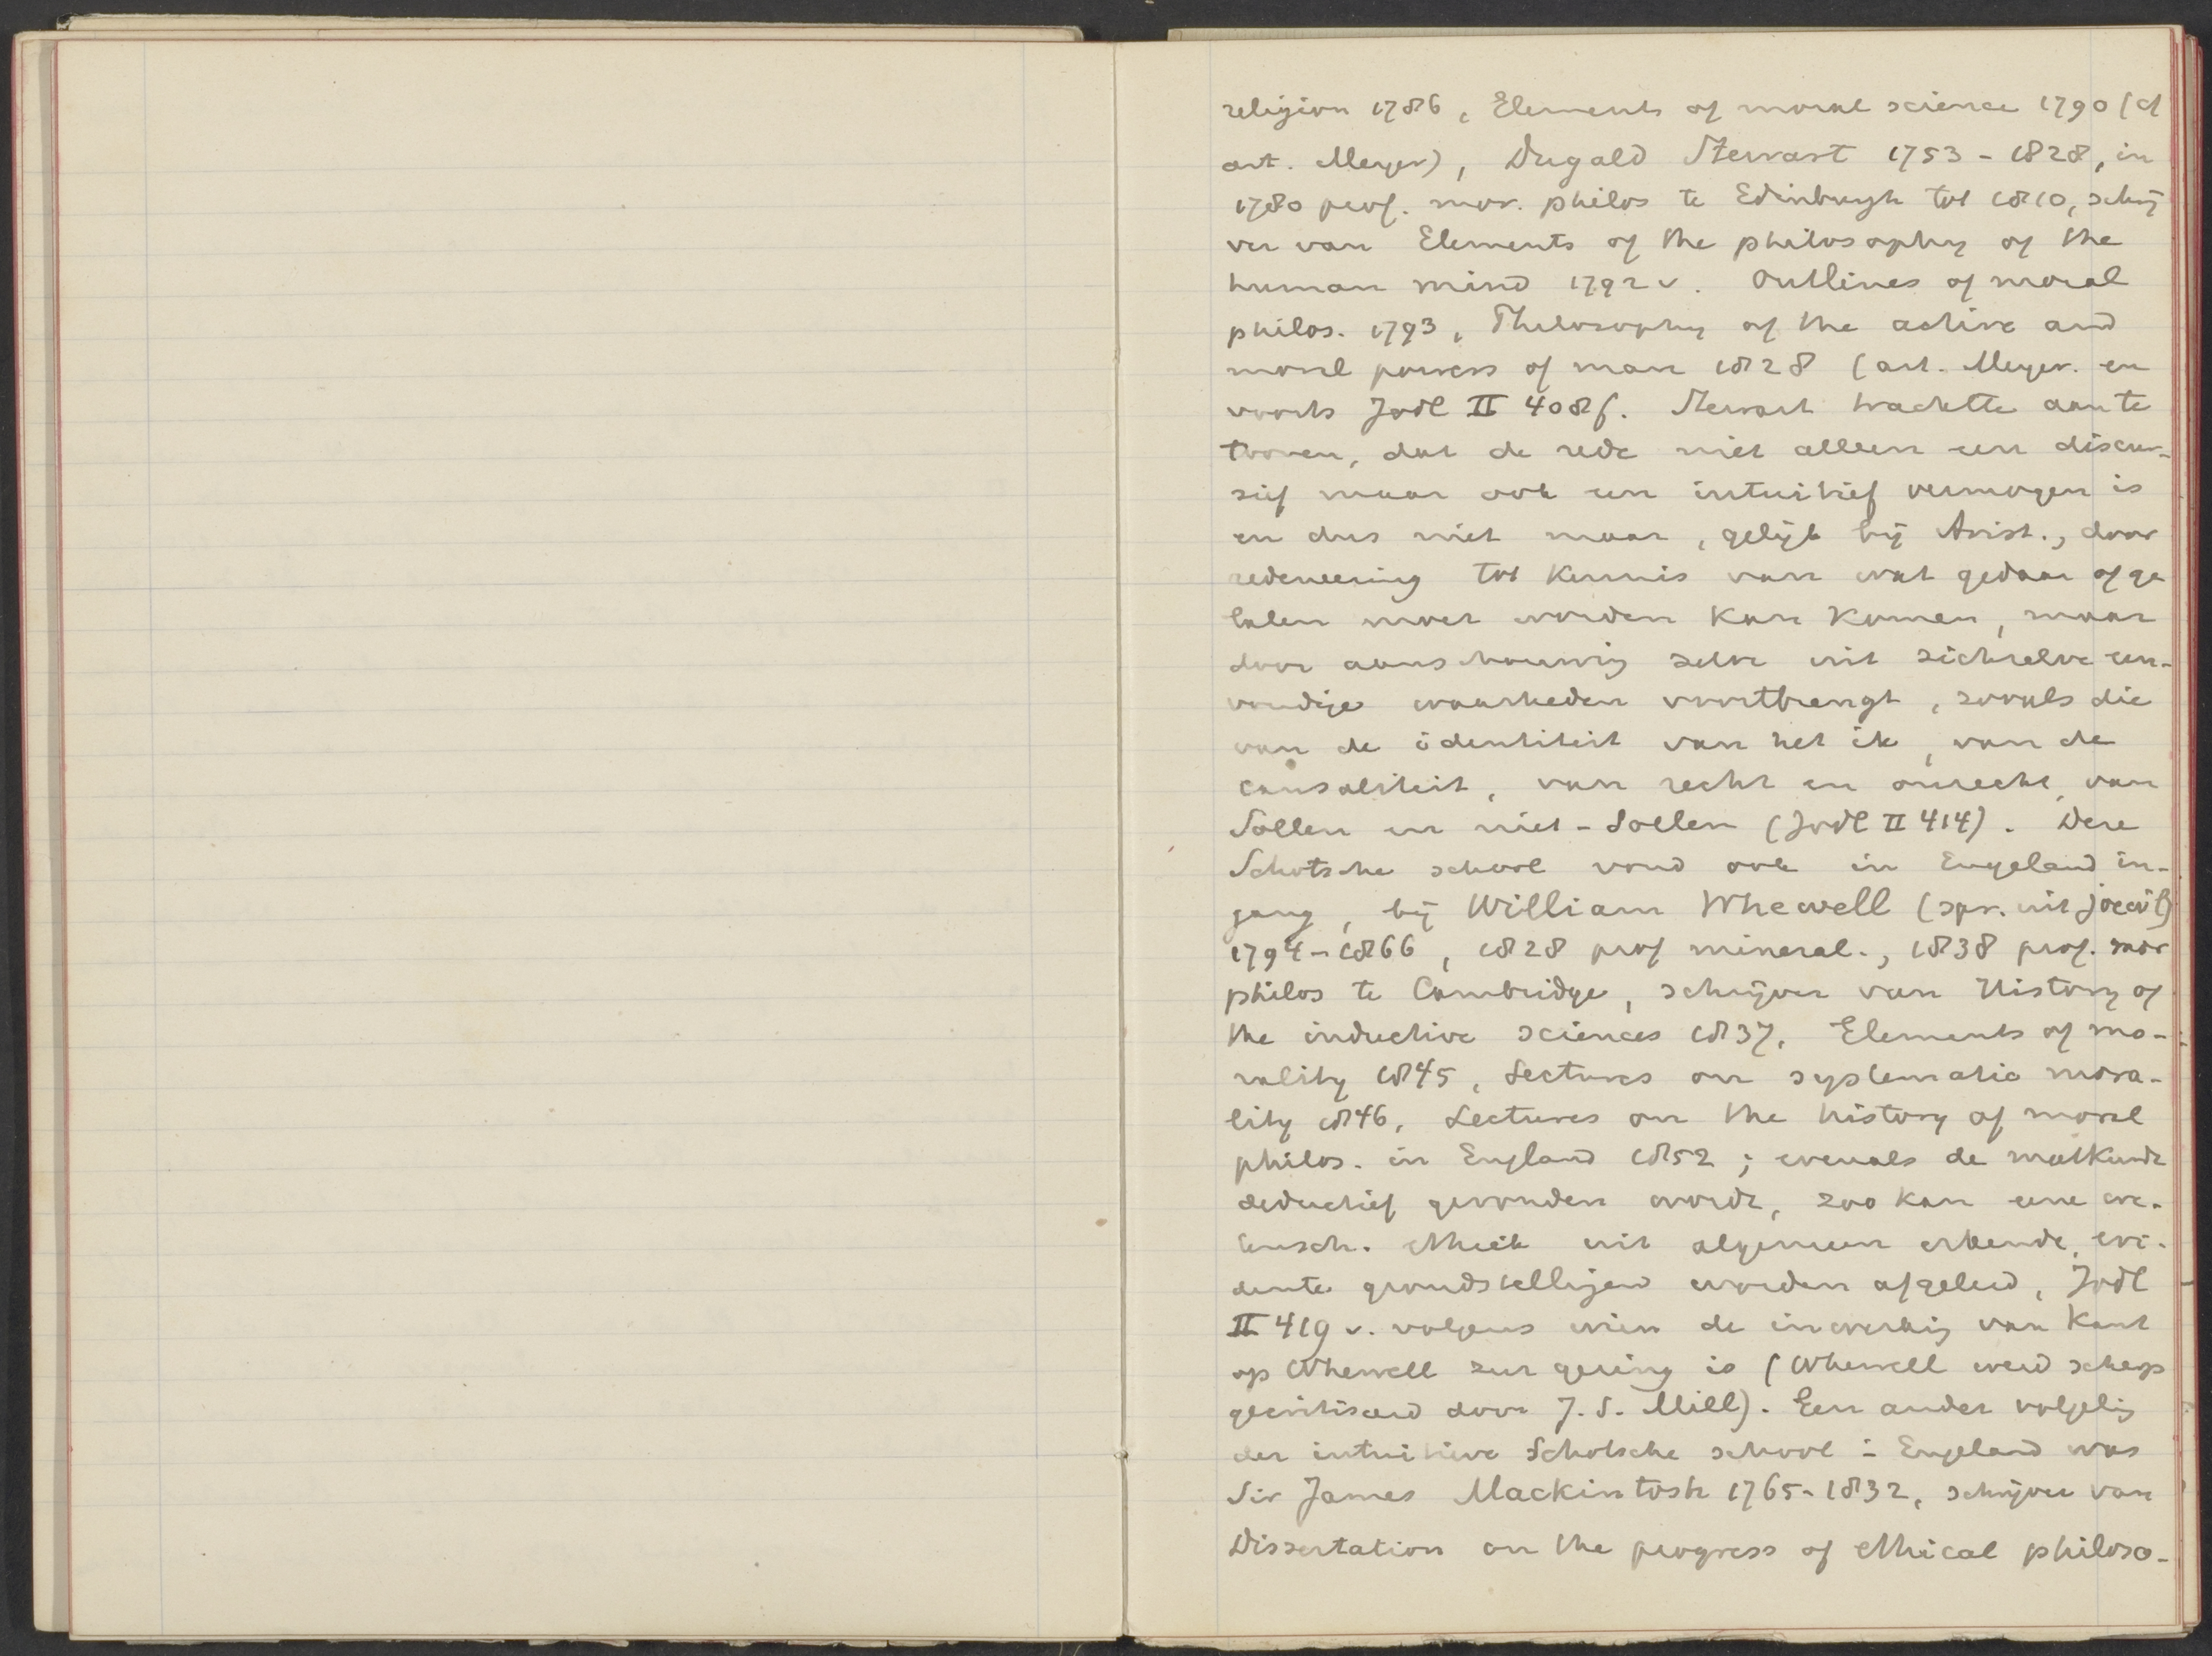 religion 1786, Elements of moral science 1790 (cf
art. Meyer), Dugald Stewart 1753-1828, in
1780 prof. mor. philos te Edinburgh tot 1810, schrij
ver van Elements of the philosophy of the
human mind 1792 v. Outlines of moral
philos. 1793, Philosophy of the active and
moral powers of man 1828 (art. Meyer. en
voorts Jodl II 408 f. Stewart trachtte aan te
toonen, dat de rede niet alleen een discur-
sief maar ook een intuitief vermogen is
en dus niet maar, gelijk bij Arist., door
redeneering tot kennis van wat gedaan of ge
laten moet worden kan komen, maar
door aanschouwing zelve uit zichzelve een-
voudige waarheden voortbrengt, zooals die
van de identiteit van het ik, van de
causaliteit, van recht en onrecht, van
Sollen en niet-Sollen (Jodl II 414). Deze
Schotsche school vond ook in Engeland in-
gang, bij William Whewell (spr. uit joewil)
1794-1866, 1828 prof mineral., 1838 prof. mor
philos te Cambridge, schrijver van History of
the inductive sciences 1837, Elements of mo-
rality 1845, Lectures on systematic mora-
lity 1846, Lectures on the history of moral
philos. in England 1852; evenals de meetkunde
deductief gevonden wordt, zoo kan eene we-
tensch. ethiek uit algemeen erkende, evi-
dente grondstellingen worden afgeleid, Jodl
II 419 v. volgens wien de inwerking van Kant
op Whewell zeer gering is (Whewell werd scherp
gecritiseerd door J. S. Mill). Een ander volgeling
der intuitieve Schotsche school in Engeland was
Sir James Mackintosh 1765-1832, schrijver van
Dissertation on the progress of ethical philoso-